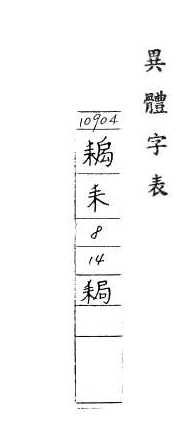 異體字表
10904
耒
8
14